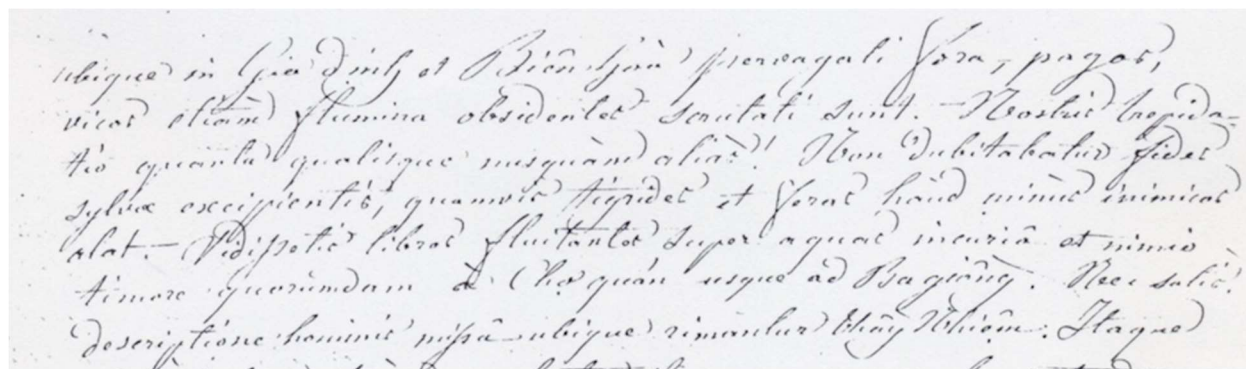 ubique in Gia Dinh et Biên Hoà pervagati fora, pagos,
vicos etiàm flumina obsidentes scrutati sunt. – Nostris trepida=
tio quanta qualisque nusquàm aliàs! Non dubitabatur fides
sylvæ excipientis, quamvis tigrides et feras haùd minùs inimicas
alat. – Vidissetis libros fluitantes super aquas incuriâ et nimio
timore quorùmdam à Chợ quán usque ad Bagiồng. Nec satis:
descriptione hominis missâ ubique rimantur thầy Nhiệm. Itaque